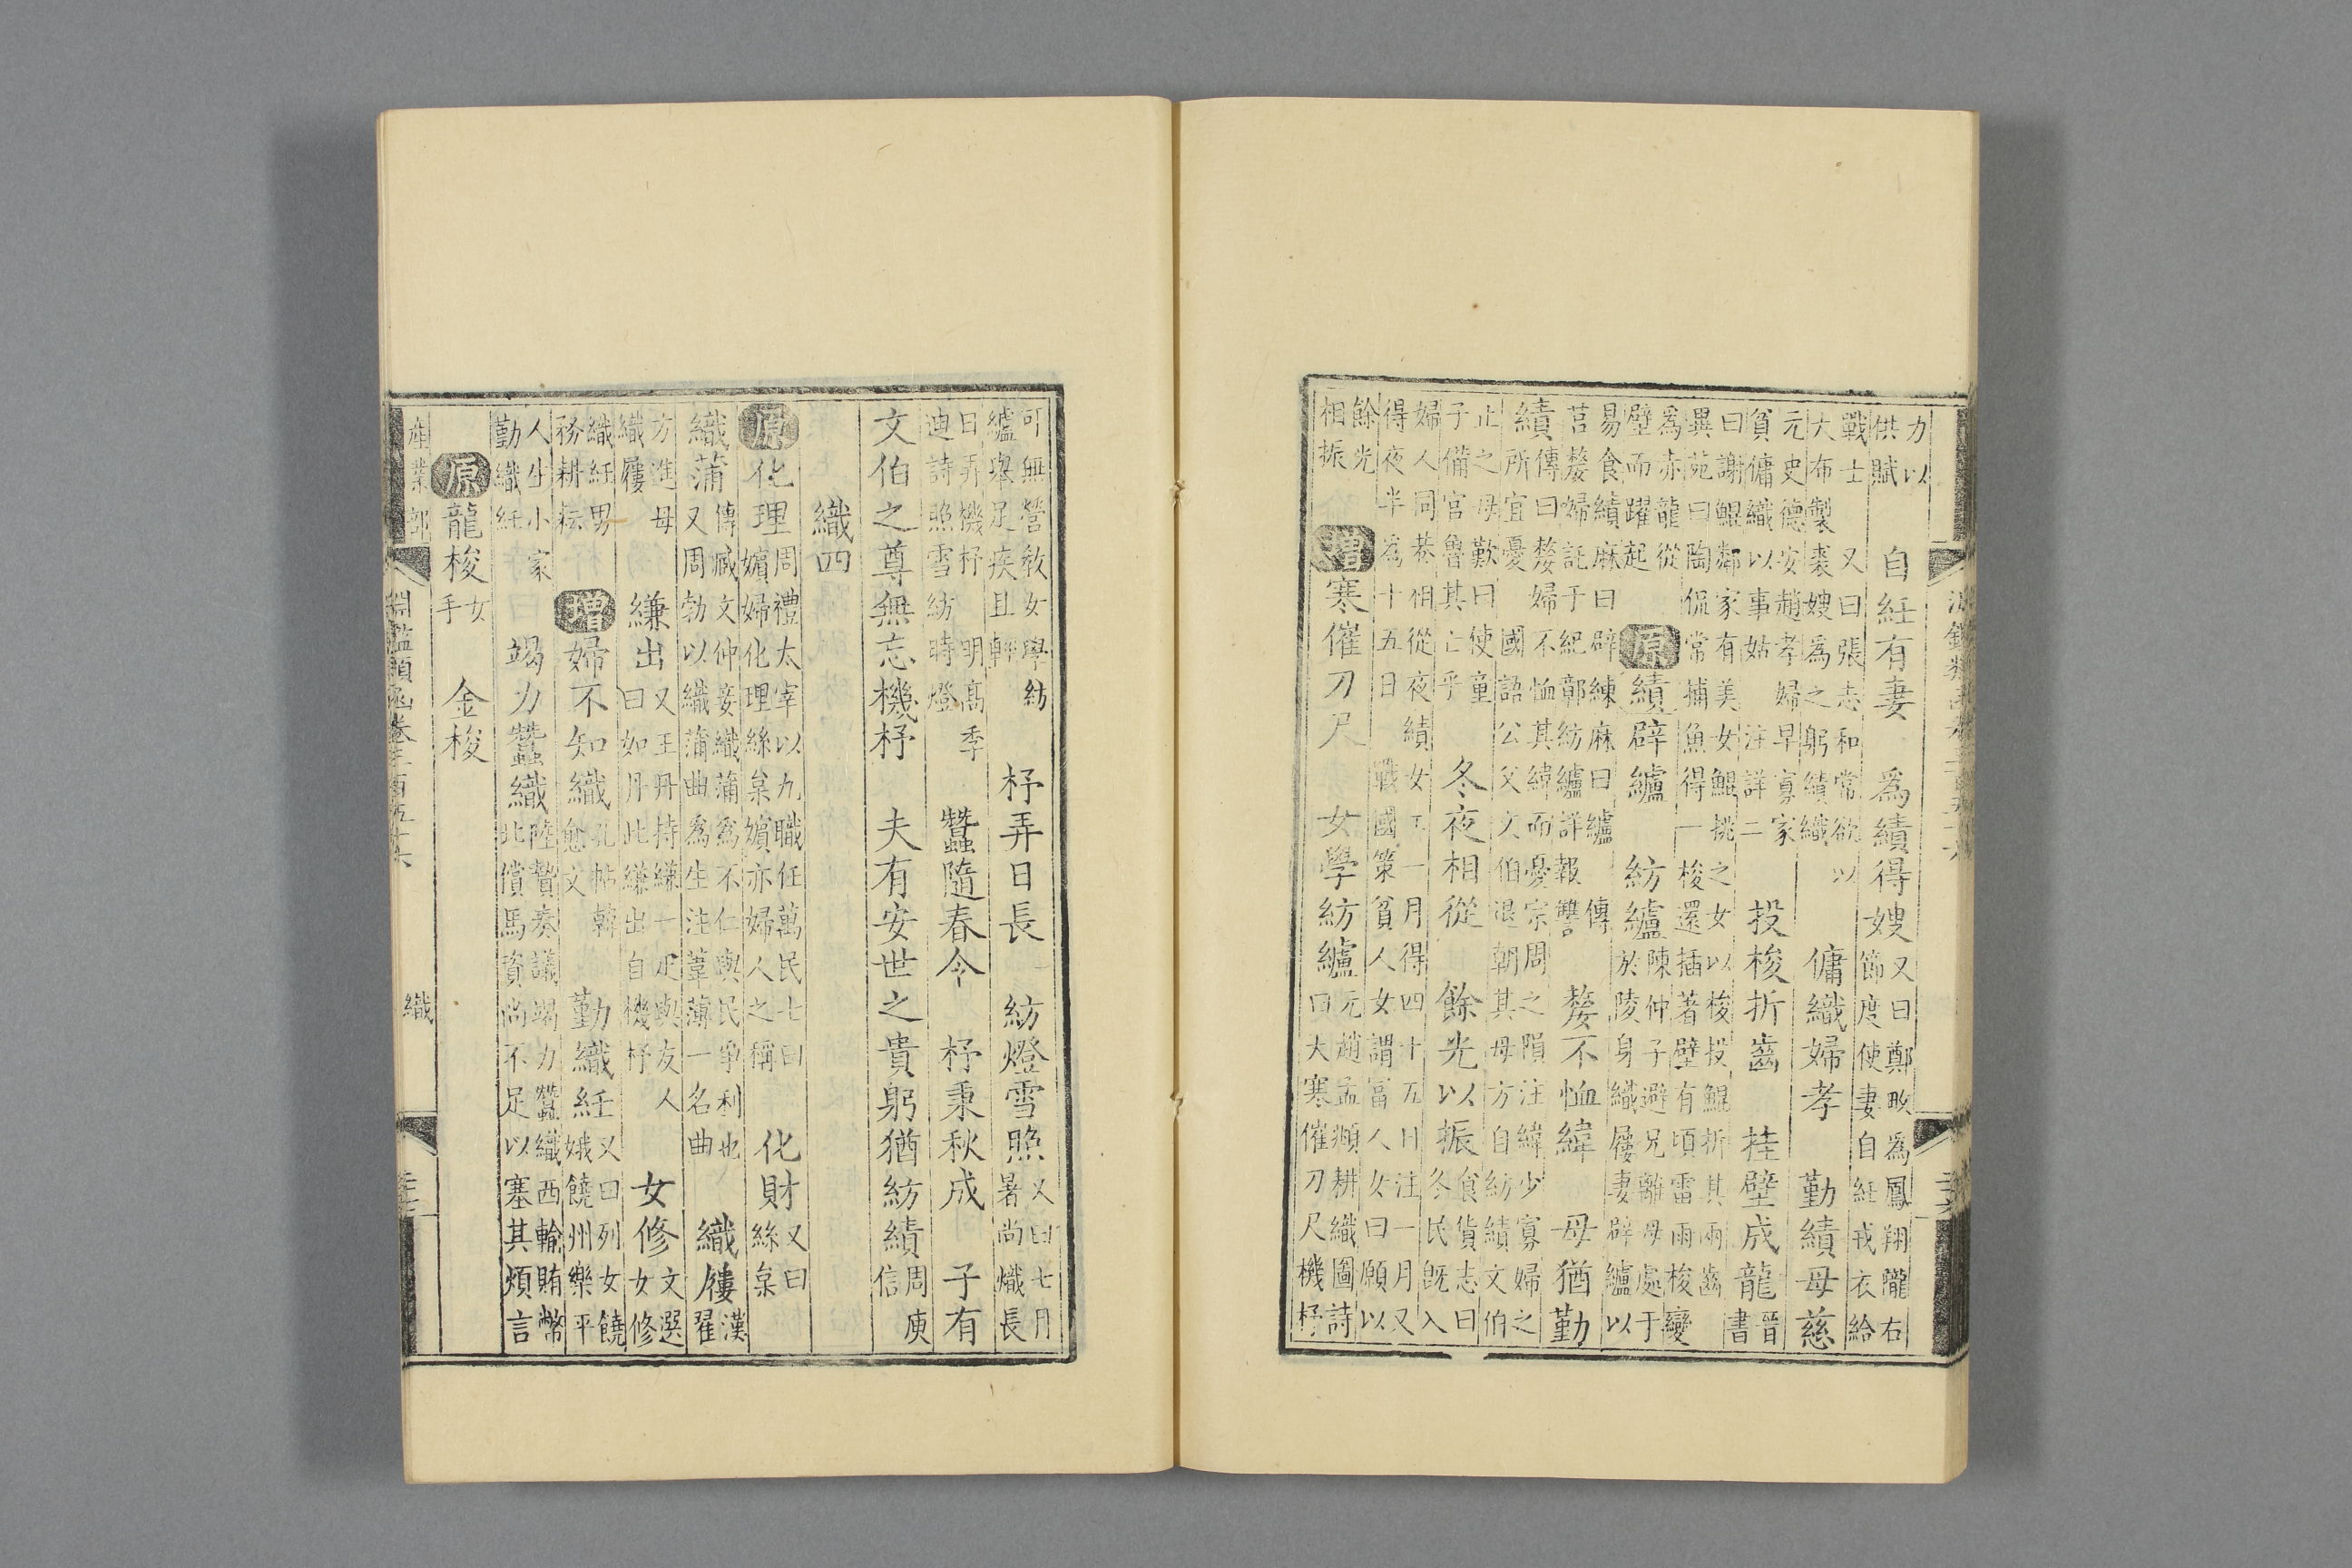 淵鑑類函卷三百五十六
力以
供賦
自紝有妻　爲績得嫂
又曰鄭畋爲鳳翔隴右
節度使妻自紝戎衣給
戰士　又曰張志和常欲以
大布製裘嫂爲之躬績織
傭織婦孝　勤績母慈
元史德安趙孝婦早寡家
貧傭織以事姑　注詳二
投梭折齒　桂壁成龍
晉
書
曰謝鯤鄰家有美女鯤挑之女以梭投鯤折其兩齒
異苑曰陶侃常捕魚得一梭還插著壁有頃雷雨梭變
爲赤龍從
壁而躍起
原
績辟纑　紡纑
陳仲子避兄離母處于
於陵身織屨妻辟纑以
易食績麻曰辟練麻曰纑　傳
莒嫠婦託于紀鄣紡纑詳報讐
嫠不恤緯　母猶勤
績
傳曰嫠婦不恤其緯而憂宗周之隕注緯少寡婦之
所宜憂　國語公父文伯退朝其母方自紡績文伯
止之母歎曰使童
子備官魯其亡乎
冬夜相從　餘光以振
食貨志曰
冬民既入
婦人同巷相從夜績女工一月得四十五日注一月又
得夜半爲十五日　戰國策貧人女謂富人女曰願以
餘光
相振
增
寒催刀尺　女學紡纑
元趙孟頫耕織圖詩
曰大寒催刀尺機杼
可無營教女學紡
纑舉足疾且輕
杼弄日長　紡燈雪照
又曰七月
暑尚熾長
日弄機杼　明高季
迪詩照雪紡時燈
蠶隨春今　杼秉秋成　子有
文伯之尊無忘機杼　夫有安世之貴躬猶紡績
周庾
信
織四
原
化理
周禮太宰以九職任萬民七曰
嬪婦化理絲枲嬪亦婦人之稱
化財
又曰
絲枲
織蒲
傳臧文仲妾織蒲爲不仁與民爭利也
又周勃以織蒲曲爲生注葦薄一名曲
織屨
漢
翟
方進母
織屨
縑出
又王丹持縑一疋與友人
曰如丹此縑出自機杼
女修
文選
女修
織紝男
務耕耘
增
婦不知織
孔帖韓
愈文
勤織紝
又曰列女饒
娥饒州樂平
人生小家
勤織紝
竭力蠶織
陸贄奏議竭力蠶織西輸賄幣
北償馬資尚不足以塞其煩言
原
龍梭
女
手
金梭
産業部
淵鑑類函卷三百五十六
織
三十七